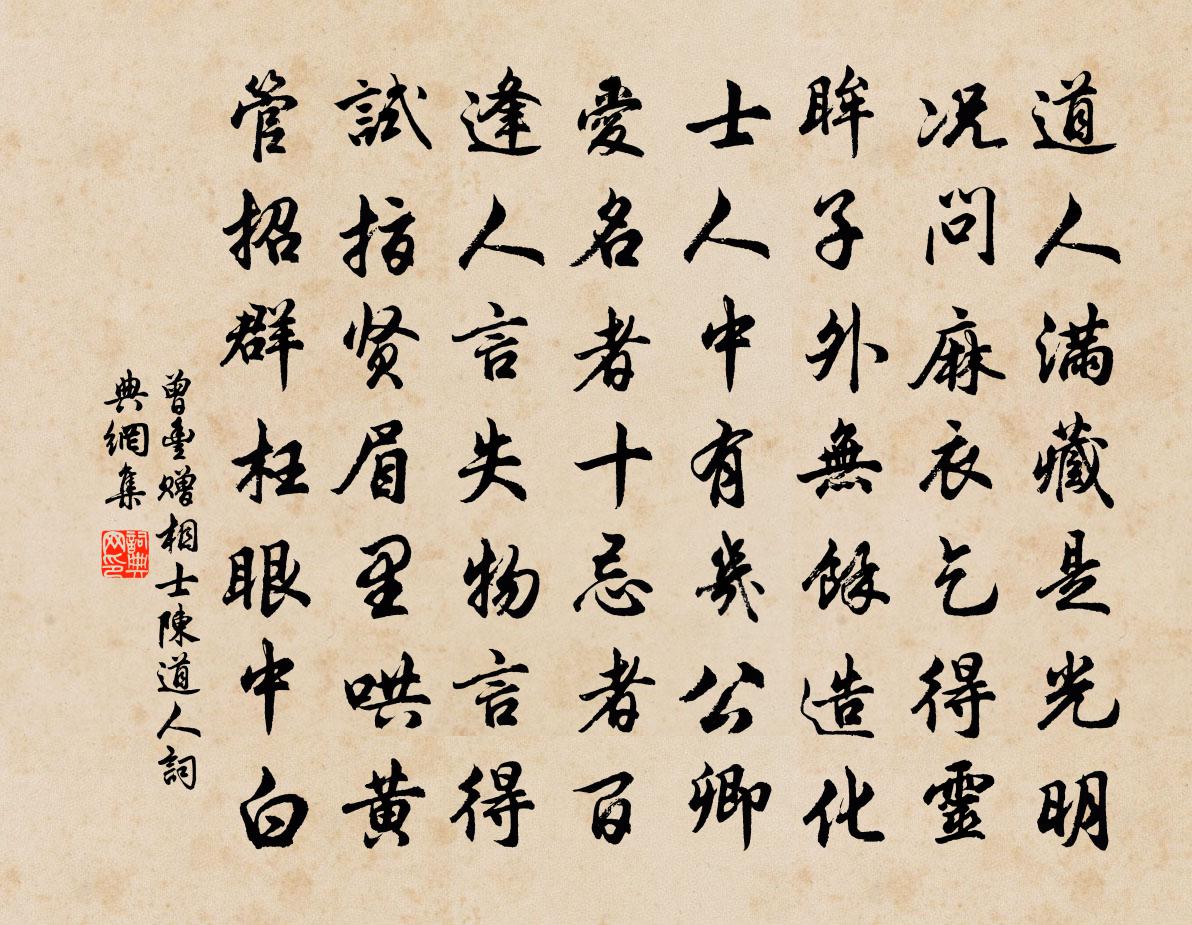 道人滿藏是光明
况問麻衣乞得靈
眸子外無餘造化
士人中有幾公卿
愛名者十忌者百
逢人言失物言得
試指贤眉里哄黄
管招群枉眼中白
曾豊贈相士陳道人詞
典網集
詞典
网印